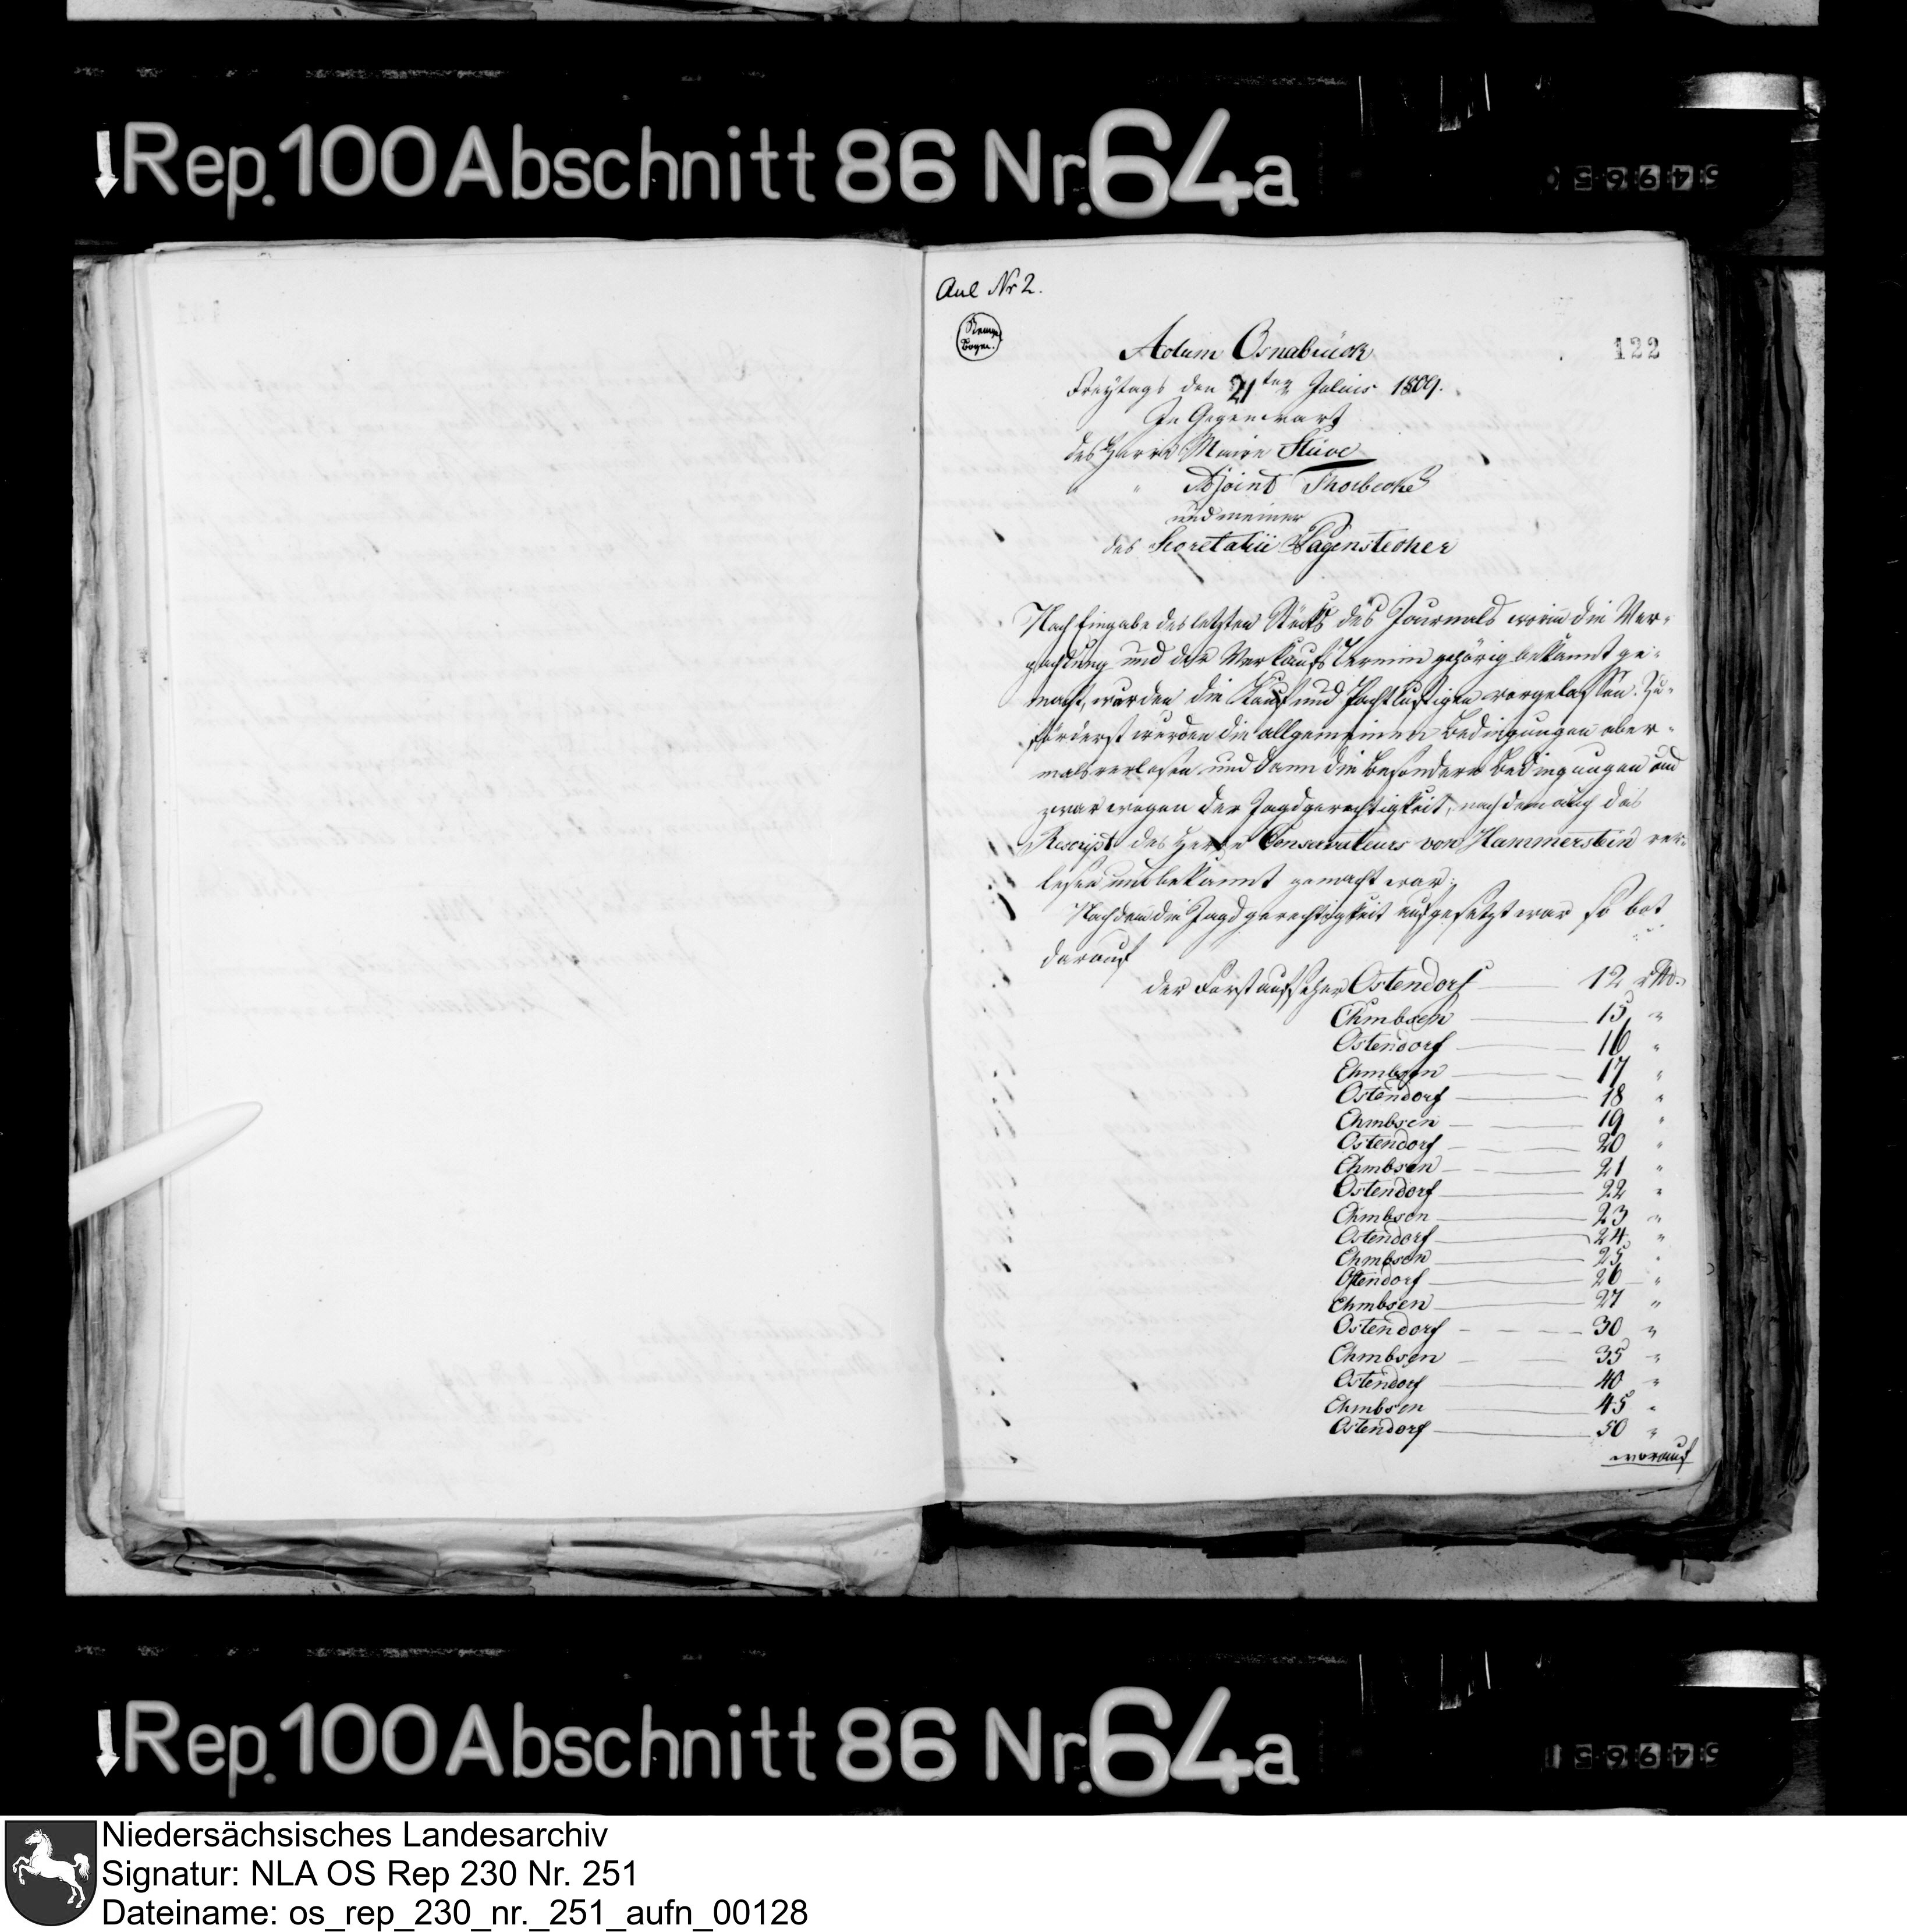 Rep. 100 Abschnitt 86 Nr. 64a
Anl Nr 2.
Stempel
Bogen.
122
Actum Osnabrück
Freytags den 21ten Julius 1809.
In Gegenwart
des Herrn Maire Stüve
" " Adjoint Thorbecke
und meiner
des Secretarii Pagenstecher
Nach Eingabe des letzten Stücks des Journals worin die Ver-
pachtung und der Verkaufs Termin gehörig bekannt ge-
macht, wurden die Kauf und Pachtlustigen vorgelassen. Zu-
förderst wurden die allgemeinen Bedingungen aber-
mals verlesen und dann die besondern Bedingungen und
zwar wegen der Jagdgerechtigkeit, nachdem auch das
Rescript des Herrn Conservateurs von Hammerstein ver-
lesen und bekannt gemacht war:
Nachdem die Jagdgerechtigkeit aufgesetzt war so bot
darauf
der Forstaufseher Ostendorf 12 rthl.
Ehmbsen 15 "
Ostendorf 16 "
Ehmbsen 17 "
Ostendorf 18 "
Ehmbsen 19 "
Ostendorf 20 "
Ehmbsen 21 "
Ostendorf 22 "
Ehmbsen 23 "
Ostendorf 24 "
Ehmbsen 25 "
Ostendorf 26 "
Ehmbsen 27 "
Ostendorf 30 "
Ehmbsen 35 "
Ostendorf 40 "
Ehmbsen 45 "
Ostendorf 50 "
worauf
Rep. 100 Abschnitt 86 Nr. 64a
Niedersächsisches Landesarchiv
Signatur: NLA OS Rep 230 Nr. 251
Dateiname: os_rep_230_nr._251_aufn_00128